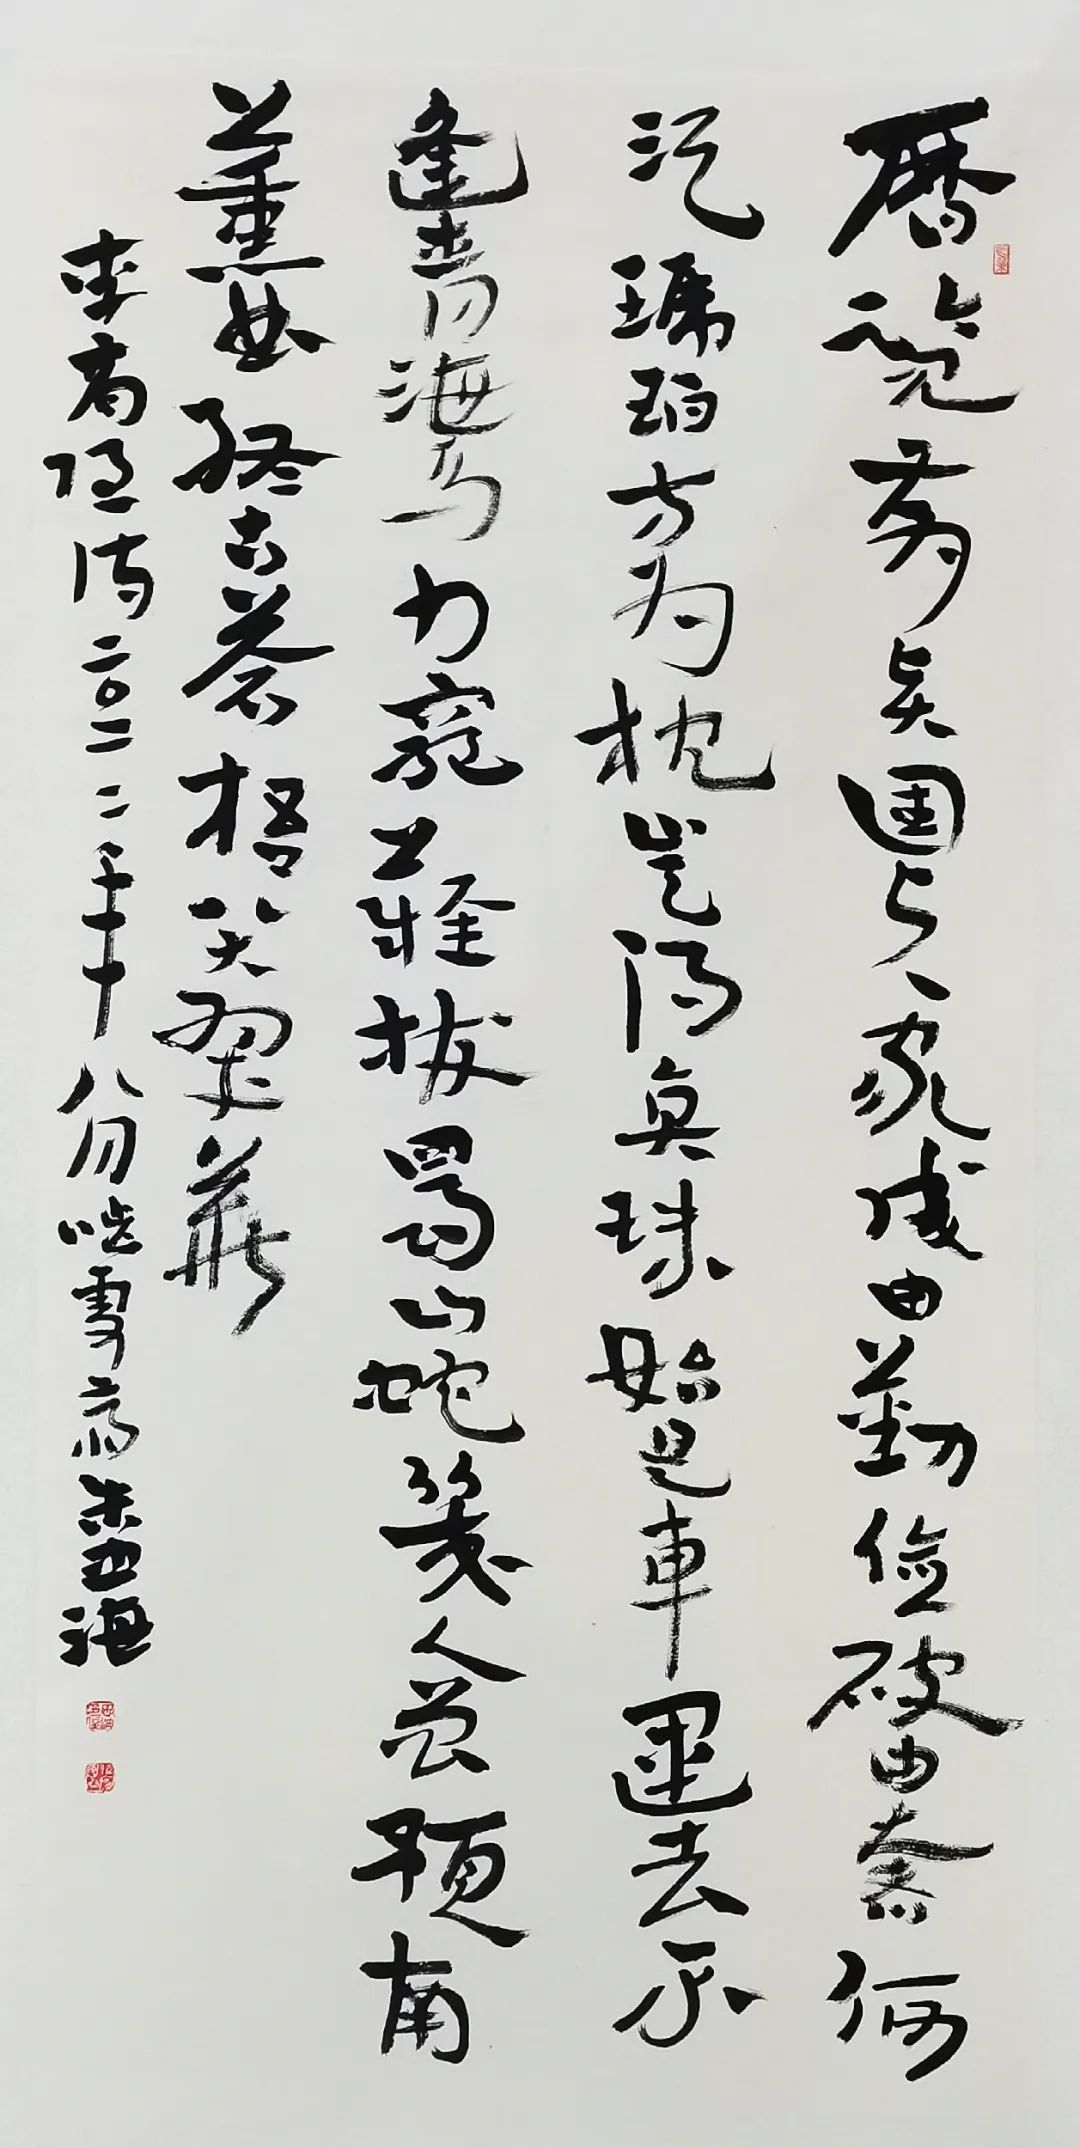 歷覽前賢國與家成由勤儉破由奢何
須琥珀方為枕豈得真珠始是車運去不
逢青海馬力窮難拔蜀山蛇幾人曾預南
薰曲終古蒼梧哭翠華
李商隱詩二〇 雪齋 海